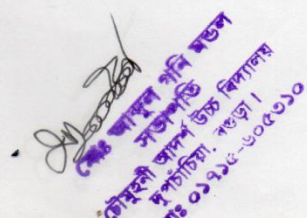 মোঃ আব্দুল গনি মন্ডল
সভাপতি
চৌমুহনী আদর্শ উচ্চ বিদ্যালয়
দুপচাঁচিয়া, বগুড়া।
০১৭১৫-৬০৫৩১০